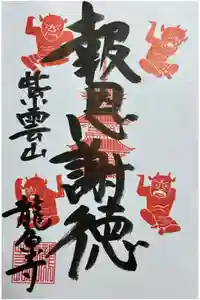 報恩謝徳
紫雲山
龍泉寺